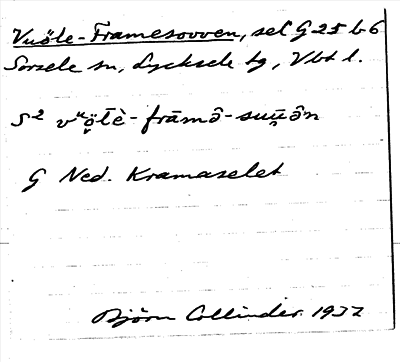 Vuöle-Framesovven, sel G 25 b 6
Sorsele sn, Lycksele tg, Vbt l.
S² vᵘö̭lē̆è-frāmô-suū̯ôn
G Ned. Kramaselet
Björn Collinder 1937